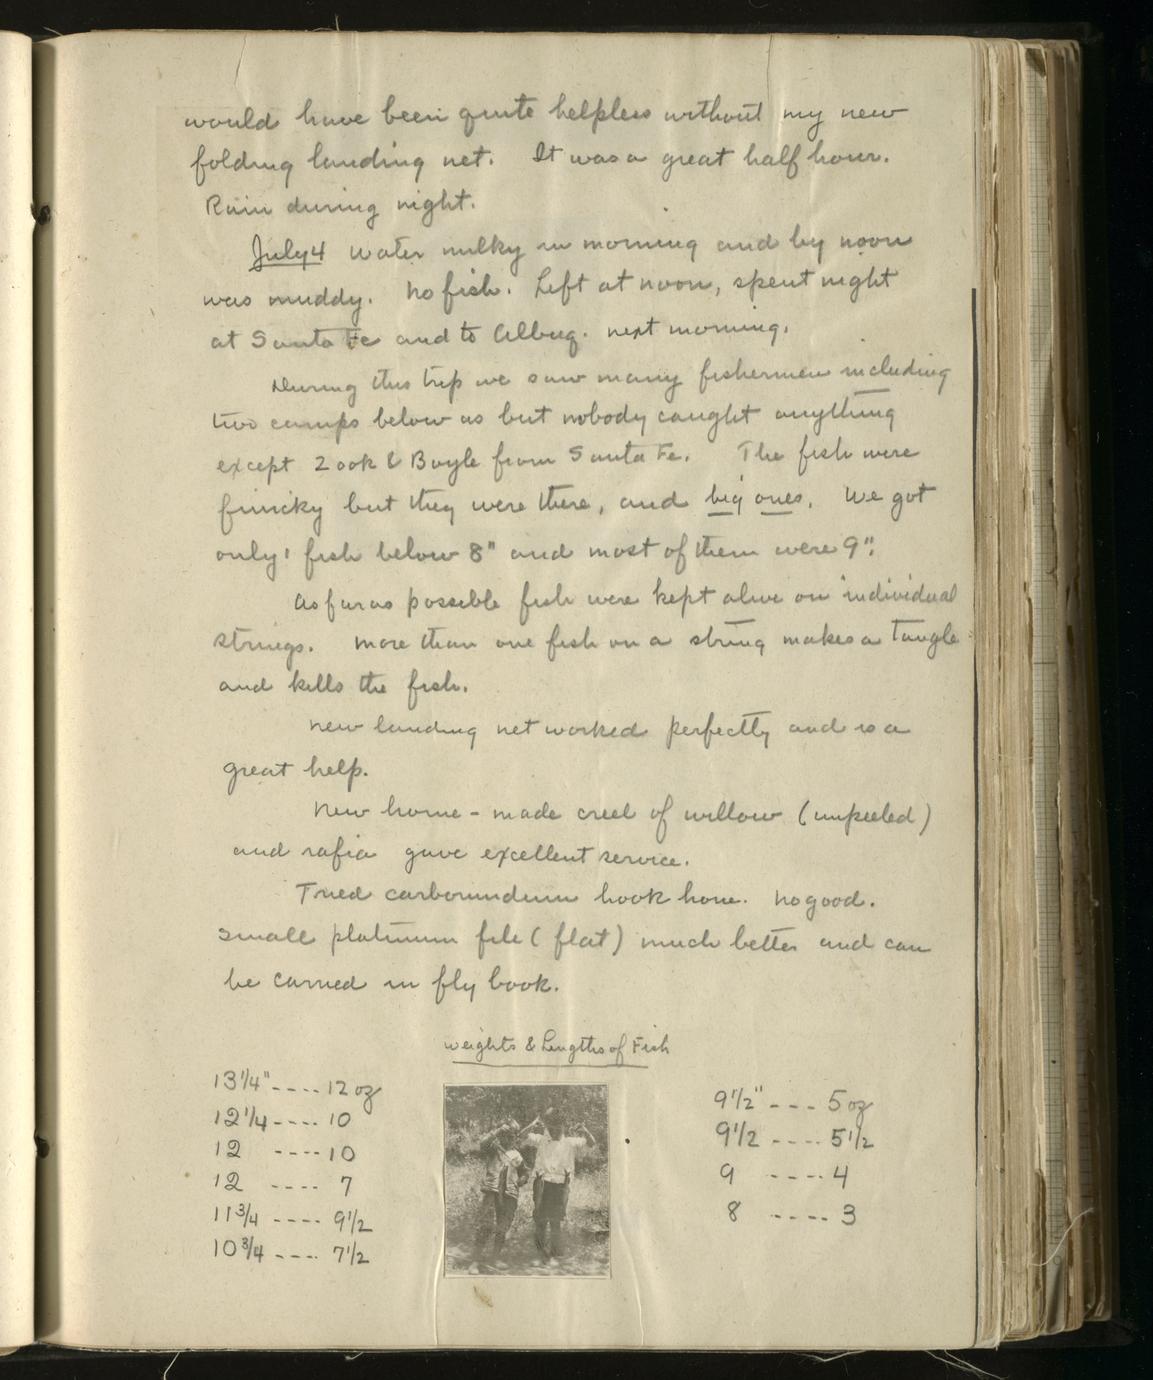 would have been quite helpless without my new
folding landing net. It was a great half hour.
Rain during night.
July 4 Water milky in morning and by noon
was muddy. No fish. Left at noon, spent night
at Santa Fe and to Albuq. next morning.
During this trip we saw many fishermen including
two camps below us but nobody caught anything
except Zook & Boyle from Santa Fe. The fish were
finicky but they were there, and big ones. We got
only 1 fish below 8" and most of them were 9".
As far as possible fish were kept alive on individual
strings. More than one fish on a string makes a tangle
and kills the fish.
New landing net worked perfectly and is a
great help.
New home-made creel of willow (unpeeled)
and rafia gave excellent service.
Tried carborundum hook hone. No good.
Small platinum file (flat) much better and can
be carried in fly book.
Weights & Lengths of Fish
13 1/4" ---- 12 oz
12 1/4 ---- 10
12 ---- 10
12 ---- 7
11 3/4 ---- 9 1/2
10 3/4 ---- 7 1/2
9 1/2" --- 5 oz
9 1/2 ---- 5 1/2
9 ---- 4
8 ---- 3